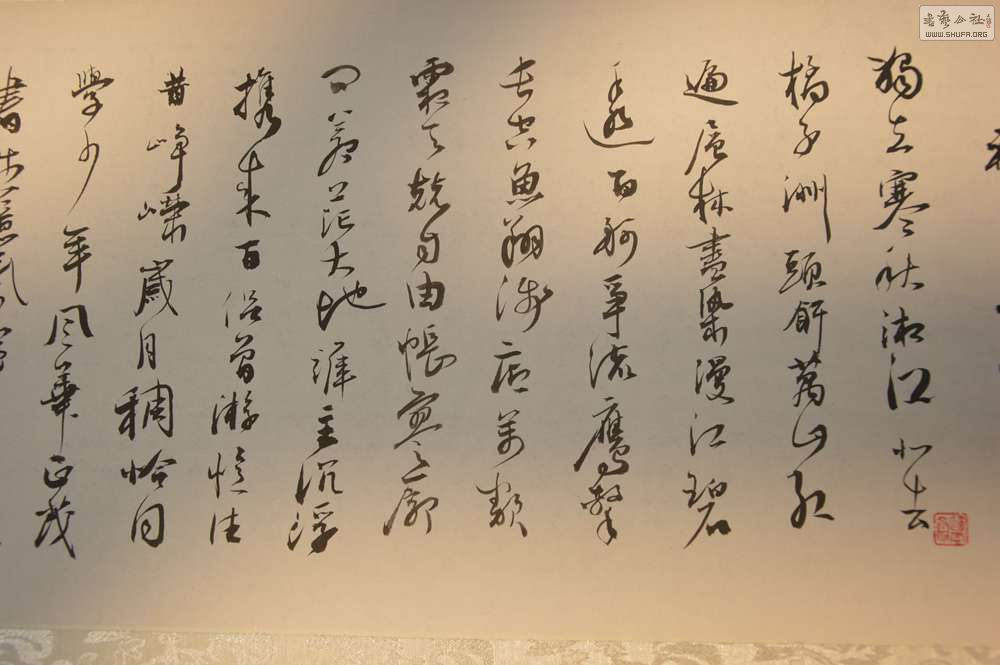 獨立寒秋湘江北去
橘子洲頭看萬山紅
遍層林盡染漫江碧
透百舸爭流鷹擊
長空魚翔淺底萬類
霜天競自由悵寥廓
問蒼茫大地誰主沉浮
攜來百侶曾游憶往
昔崢嶸歲月稠恰同
學少年風華正茂
書生意氣
書藝公社
WWW.SHUFA.ORG